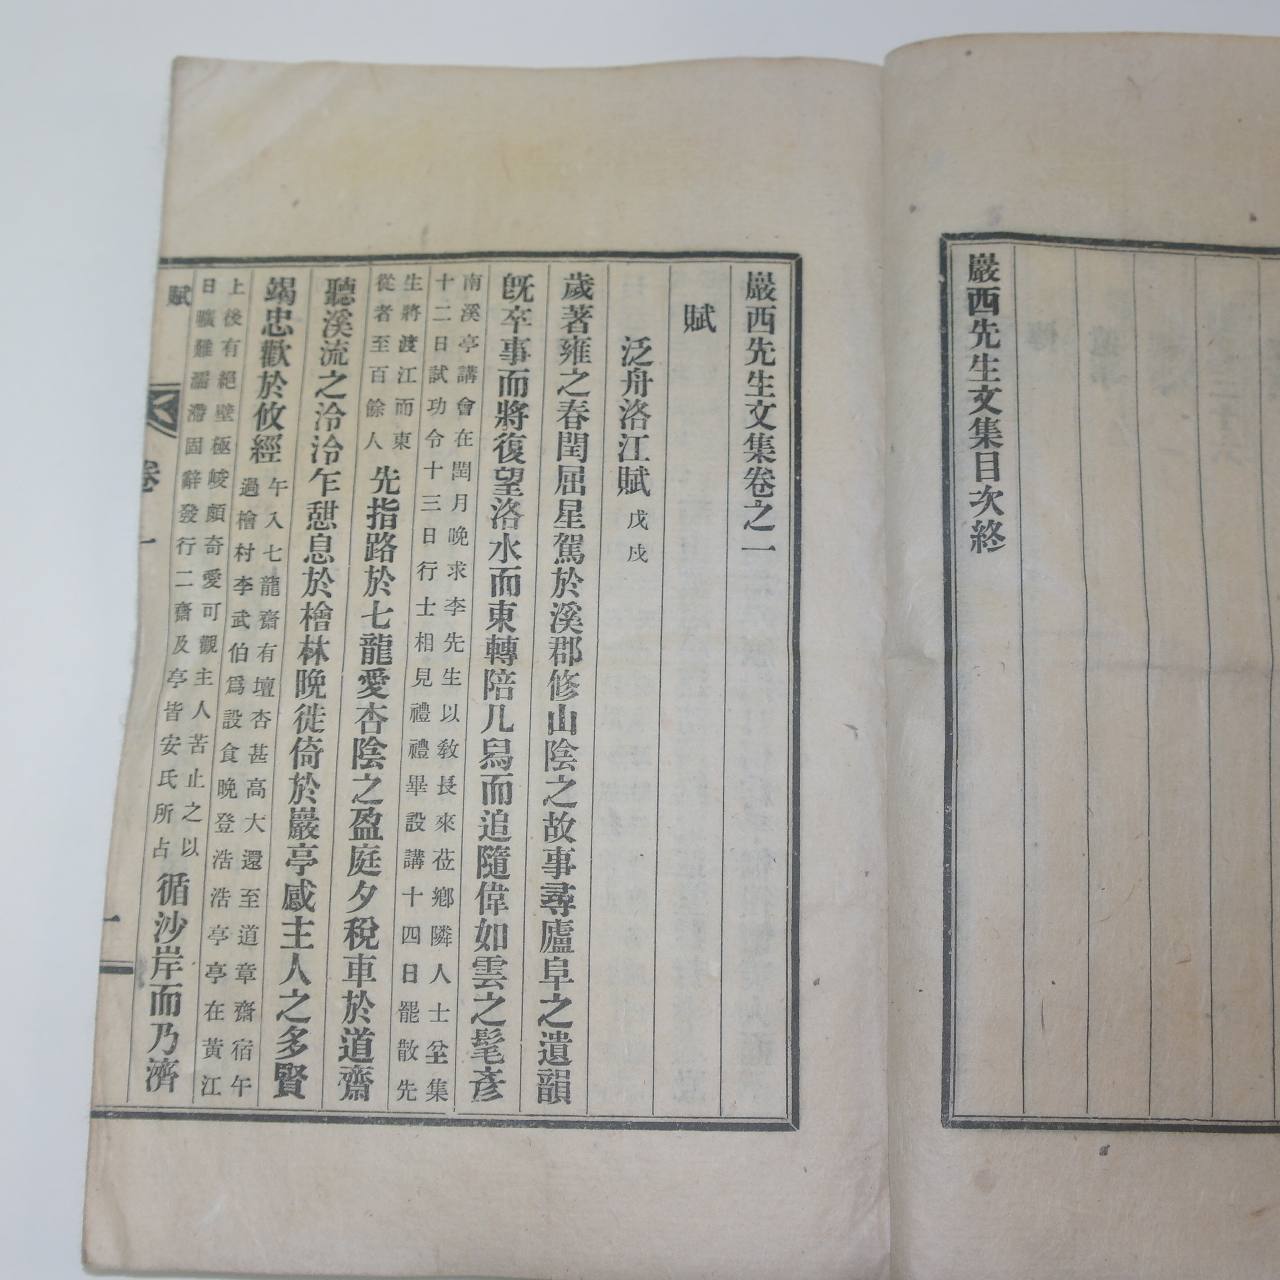 巖西先生文集目次終
巖西先生文集卷之一
賦
泛舟洛江賦戊戌
歲著雍之春閏屈星駕於溪郡修山陰之故事尋廬阜之遺韻
旣卒事而將復望洛水而東轉陪几舃而追隨偉如雲之髦彥
南溪亭講會在閏月晚求李先生以敎長來莅鄕隣人士坌集
十二日試功令十三日行士相見禮禮畢設講十四日罷散先
生將渡江而東
從者至百餘人
先指路於七龍愛杏陰之盈庭夕稅車於道齋
聽溪流之泠泠乍憇息於檜林晩徙倚於巖亭感主人之多賢
竭忠歡於攸經
午入七龍齋有壇杏甚高大還至道章齋宿午
過檜村李武伯爲設食晩登浩浩亭亭在黃江
上後有絕壁極峻頗奇愛可觀主人苦止之以
日曠難濡滯固辭發行二齋及亭皆安氏所占
循沙岸而乃濟
賦
卷一
一